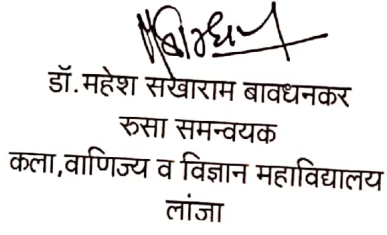 डॉ. महेश सखाराम बावधनकर
रुसा समन्वयक
कला,वाणिज्य व विज्ञान महाविद्यालय
लांजा